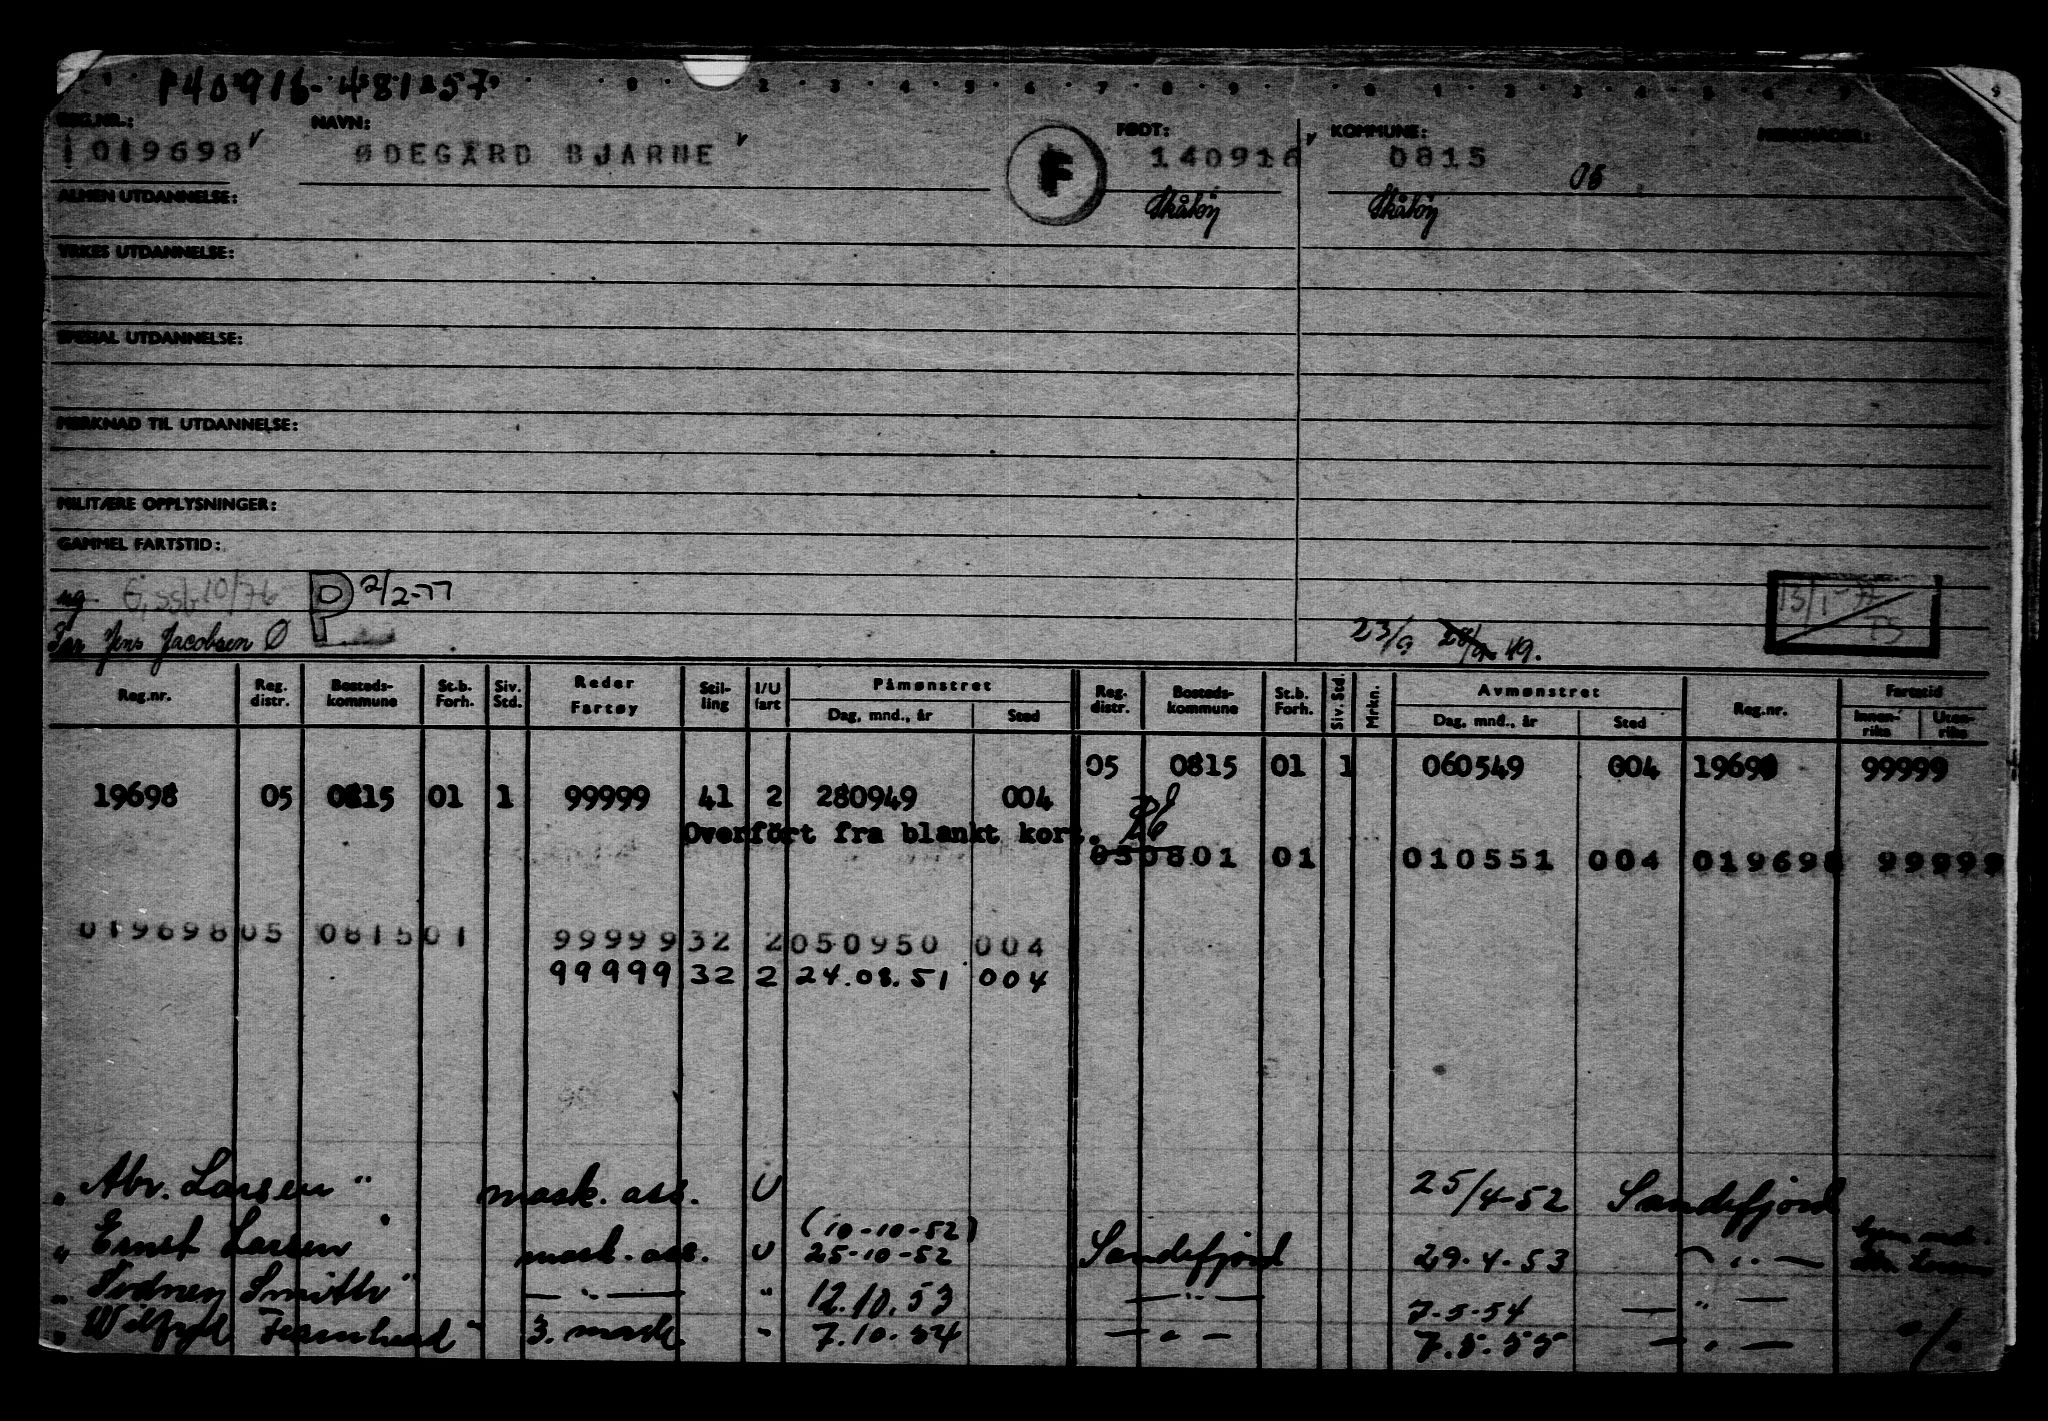 140916-481257
REG.NR.: NAVN: FØDT: KOMMUNE: MERKNADER:
1019698 ØDEGÅRD BJARNE F 140916 0815
05
Skåtøy Skåtøy
ALMEN UTDANNELSE:
YRKES UTDANNELSE:
SPESIAL UTDANNELSE:
MERKNAD TIL UTDANNELSE:
MILITÆRE OPPLYSNINGER:
GAMMEL FARTSTID:
ug 10/76 D 2/2-77
Far Jens Jacobsen Ø 23/9 49.
Reg.nr. Reg. distr. Bosteds-kommune St.b. Forh. Siv. Std. Reder Fartøy Stil-ling I/U fart Påmønstret Dag, mnd., år Sted Reg. distr. Bosteds-kommune St.b. Forh. Siv. Std. Mrkn. Avmønstret Dag, mnd., år Sted Reg.nr. Fartstid Innen-riks Uten-riks
05 0815 01 1 060549 004 19698 99999
19698 05 0815 01 1 99999 41 2 280949 004
Overført fra blankt kort. 26
050801 01 010551 004 019698 99999
019698 05 0815 01 99999 32 2 050950 004
99999 32 2 24.08.51 004
" Abr. Larsen" mask. ass. U 25/4-52 Sandefjord
(10-10-52)
" Ernst Larsen" mask. ass. U 25-10-52 Sandefjord 29-4-53 — " —
" Sidney Smith" — " — " 12.10.53 — " — 7-5-54 — " —
" Wilfred Fearnhead" 3. mask. " 7.10.54 — " — 7.5.55 — " —